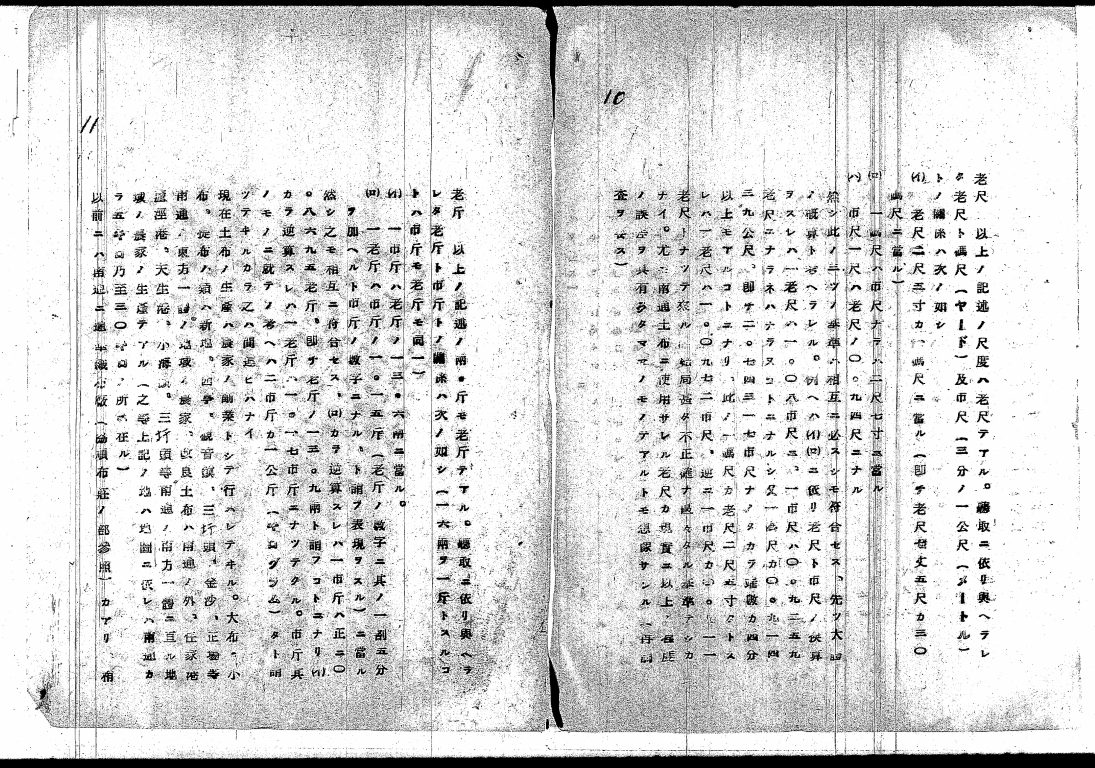 10
老尺 以上ノ記述ノ尺度ハ老尺デアル。聽取ニ依リ與ヘラレ
タ老尺ト碼尺(ヤード)及市尺(三分ノ一公尺(メートル)
トノ關係ハ次ノ如シ
(イ) 老尺二尺五寸カ一碼尺ニ當ル(即チ老尺壱丈五尺カ三〇
碼尺ニ當ル)
(ロ) 一碼尺ハ市尺ナラハ二尺七寸ニ當ル
(ハ) 市尺一尺ハ老尺ノ〇.九四尺ニナル
然シ此ノ三ツノ基準ハ相互ニ必スシモ符合セス、先ツ大
ノ概算ト考ヘラレル。例ヘハ(イ)(ロ)ニ依リ老尺ト市尺ノ換算
ヲスレハ一老尺ハ一.〇八市尺ニ、一市尺ハ〇.九二五九
老尺ニナラネハナラヌコトニナルシ又一碼尺カ〇.九一四
三九公尺、即チ二.七四三一七市尺ナ カラ端數カ四分
以上モアルコトニナリ、此ノ一碼尺カ老尺二尺五寸 トス
レハ一老尺ハ一.〇九七二市尺、逆ニ一市尺カ〇.九一一
老尺トナツテ來ル 結局甚ダ不正確ナ過キタル基準 シカ
ナイ。尤モ南通土布ニ使用サレル老尺カ現實ニ以上 程度
ノ誤差ヲ具有シタママノモノデアルトモ想像サレル(再調
査ヲ要ス)
11
老斤 以上ノ記述ノ兩、斤モ老斤デアル。聽取ニ依リ與ヘラ
レタ老斤ト市斤トノ關係ハ次ノ如シ(一六兩ヲ一斤トスルコ
トハ市斤モ老斤モ同一)
(イ) 一市斤ハ老斤ノ一三.六兩ニ當ル。
(ロ) 一老斤ハ市斤ノ一.一五斤(老斤ノ數字ニ其ノ一割五分
ヲ加ヘルト市斤ノ數字ニナル、ト謂フ表現ヲスル)ニ當ル
然シ之モ相互ニ符合セス、(ロ)カラ逆算スレハ一市斤ハ正ニ〇
.八六九五老斤、即チ老斤ノ一三.九兩ト謂フコトニナリ(イ)
カラ逆算スレハ一老斤ハ一.一七市斤ニナツテクル。市斤其
ノモノニ就テノ考ヘハ二市斤カ一公斤(キログラム)タト謂
ツテキルカラ之ハ間違ヒハナイ
現在土布ノ生產ハ農家ノ副業トシテ行ハレテキル。大布、小
布、 布ノ類ハ新地、四 、 音 、三圩頭、金沙、正場等
南通ノ東方一帶ノ地域ノ農家、改良土布ハ南通ノ外、任家港
涇港、天生港、小海 、三圩頭等南通ノ南方一帶ニ亘ル地
域ノ農家ノ生產デアル(之等上記ノ地ハ地圖ニ依レハ南通カ
ラ五 乃至三〇 ノ所ニ在ル)
以前ニハ南通ニ ( 布莊ノ部參照)カアリ 相